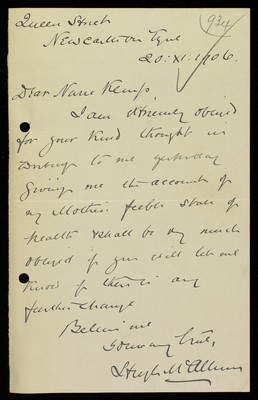 934
Queen Street
Newcastle on Tyne
20:XI:1906.
Dear Nurse Kemp,
I am extremely obliged
for your kind thought in
writing to me yesterday
giving me the account of
my Mother's feeble state of
health & shall be very much
obliged if you will let me
know if there is any
further change
Believe me
yours very truly,
Hugh McCallum